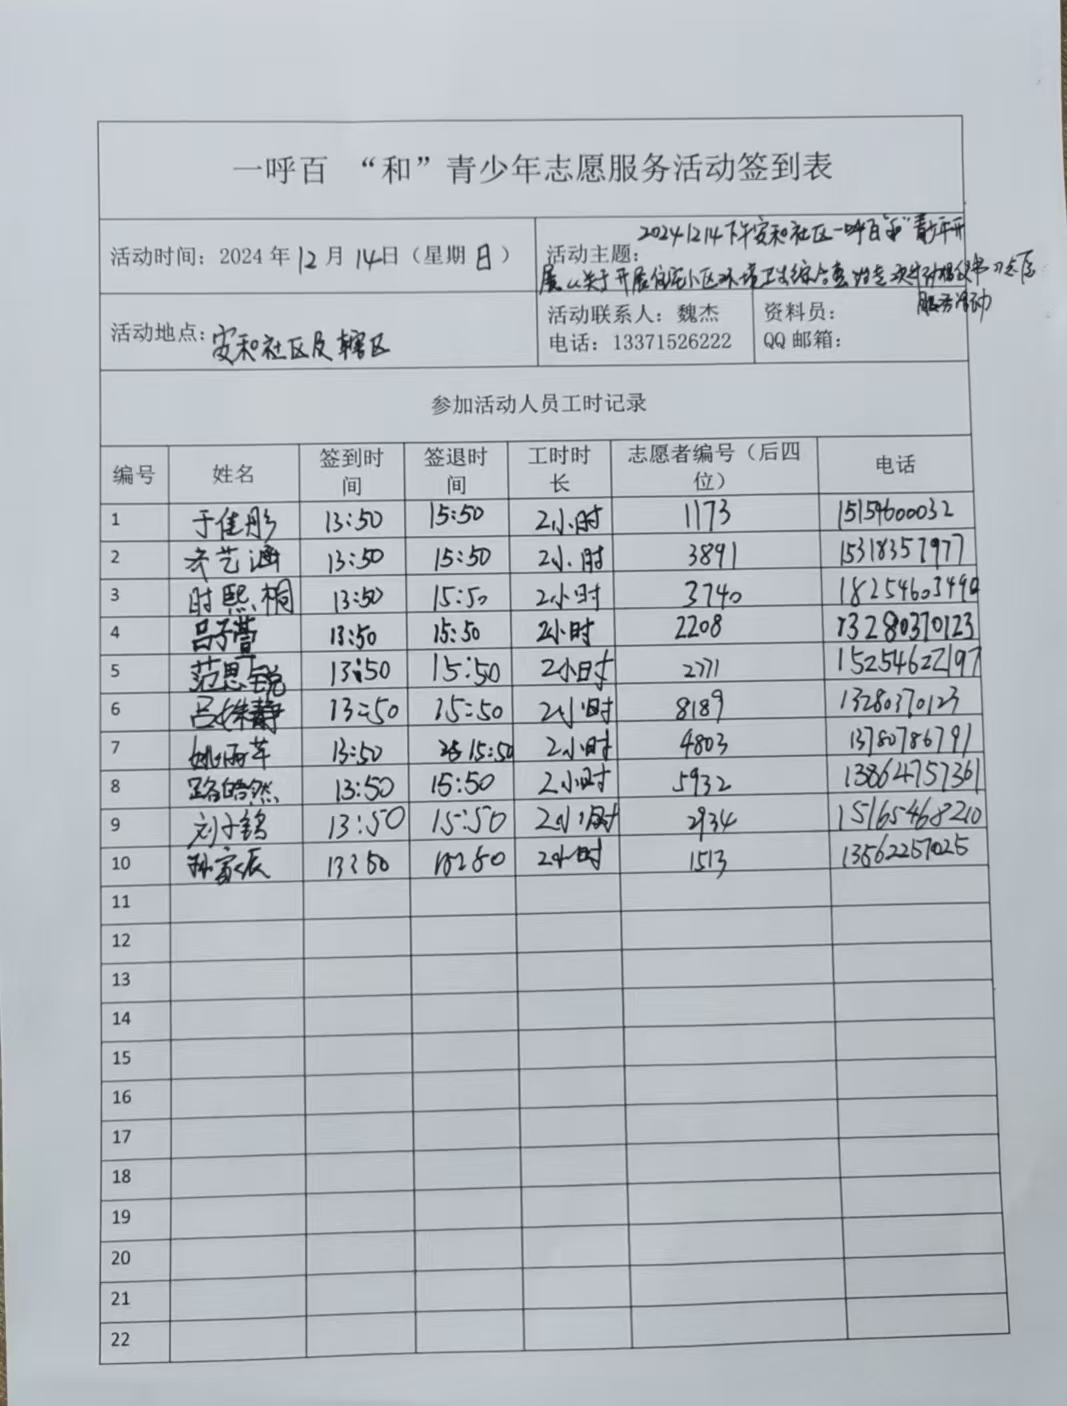 一呼百 “和”青少年志愿服务活动签到表
活动时间：2024年12月14日（星期日）
活动主题：20241214下午安和社区一呼百“和”青少年开
展“关于开展住宅小区环境卫生综合整治
服务活动
活动地点：安和社区及辖区
活动联系人：魏杰
电话：13371526222
资料员：
QQ邮箱：
参加活动人员工时记录
编号 姓名 签到时间 签退时间 工时时长 志愿者编号（后四位） 电话
1 于佳彤 13:50 15:50 2小时 1173 15154600032
2 艺涵 13:50 15:50 2小时 3891 15318357977
3 时熙桐 13:50 15:50 2小时 3740 18254603490
4 吕子萱 13:50 15:50 2小时 2208 13280370123
5 范思锐 13:50 15:50 2小时 2771 15254622197
6 吕姝静 13:50 15:50 2小时 8189 13280370123
7 姚雨苹 13:50 15:50 2小时 4803 13780786791
8 路皓然 13:50 15:50 2小时 5932 13864757361
9 刘子铭 13:50 15:50 2小时 2934 15165468210
10 孙家辰 13:50 15:50 2小时 1513 13562257025
11
12
13
14
15
16
17
18
19
20
21
22